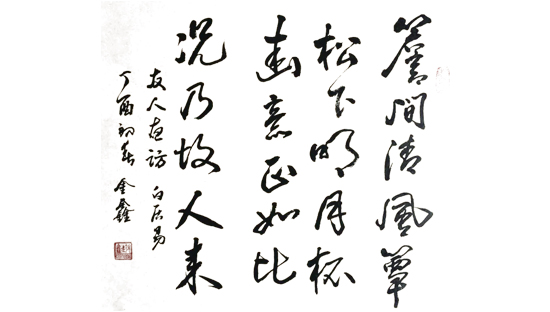 簷間清風簟
松下明月杯
幽意正如此
况乃故人来
友人夜访 白居易
丁酉初春 金鑫